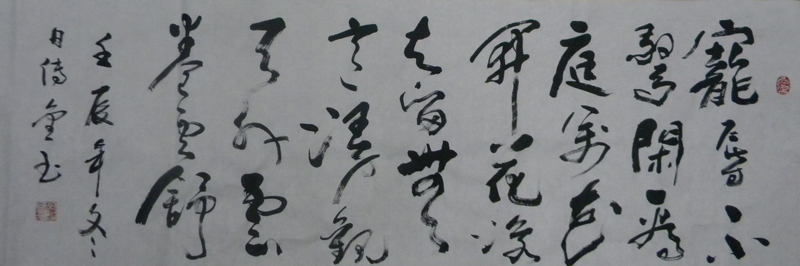 寵辱不
驚閑看
庭前花
開花落
去留無
意漫觀
天外雲
卷雲舒
壬辰年冬
月傅金玉